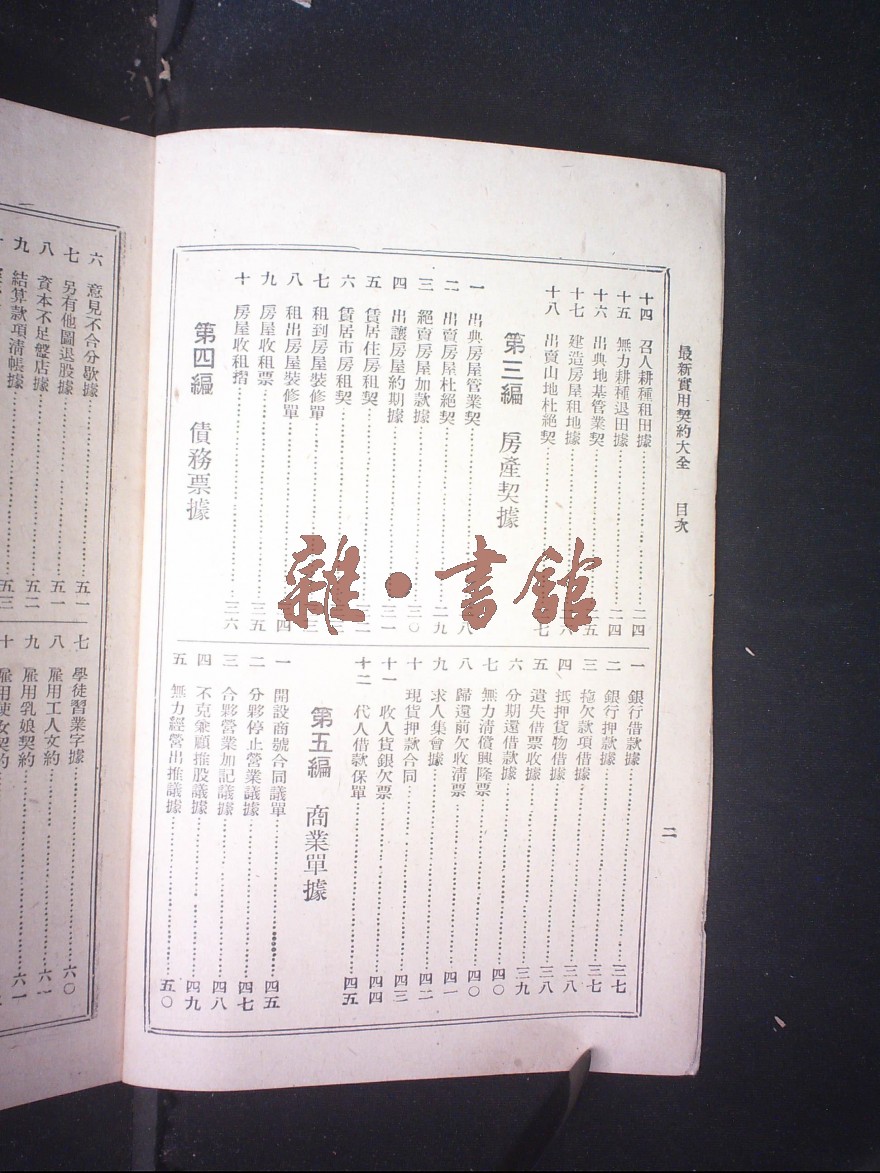 最新實用契約大全 目次
二
十四 召人耕種租田據 二四
十五 無力耕種退田據 二四
十六 出典地基管業契 五
十七 建造房屋租地據 六
十八 出賣山地杜絕契 七
第三編 房產契據
一 出典房屋管業契 八
二 出賣房屋杜絕契 二九
三 絕賣房屋加款據 三〇
四 出讓房屋約期據 三一
五 賃居住房租契
六 賃居市房租契
七 租到房屋裝修單
八 租出房屋裝修單 四
九 房屋收租票 三五
十 房屋收租摺 三六
第四編 債務票據
一 銀行借款據 三七
二 銀行押款據 三七
三 拖欠款項借據 三八
四 抵押貨物借據 三八
五 遺失借票收據 三八
六 分期還借款據 三九
七 無力清償興隆票 四〇
八 歸還前欠收清票 四〇
九 求人集會據 四一
十 現貨押款合同 四二
十一 收人貨銀欠票 四三
十二 代人借款保單 四五
第五編 商業單據
一 開設商號合同議單 四五
二 分夥停止營業議據 四七
三 合夥營業加記議據 四八
四 不克兼顧推股議據 四九
五 無力經營出推議據 五〇
六 意見不合分歇據 五一
七 另有他圖退股據 五一
八 資本不足盤店據 五二
九 結算款項清帳據 五三
七 學徒習業字據 六〇
八 雇用工人文約 六一
九 雇用乳娘契約 六一
十 雇用使女契約
雜·書館